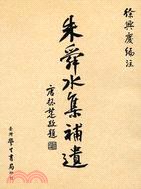 徐興慶編注
朱舜水集補遺
唐振楚敬題
臺灣學生書局印行